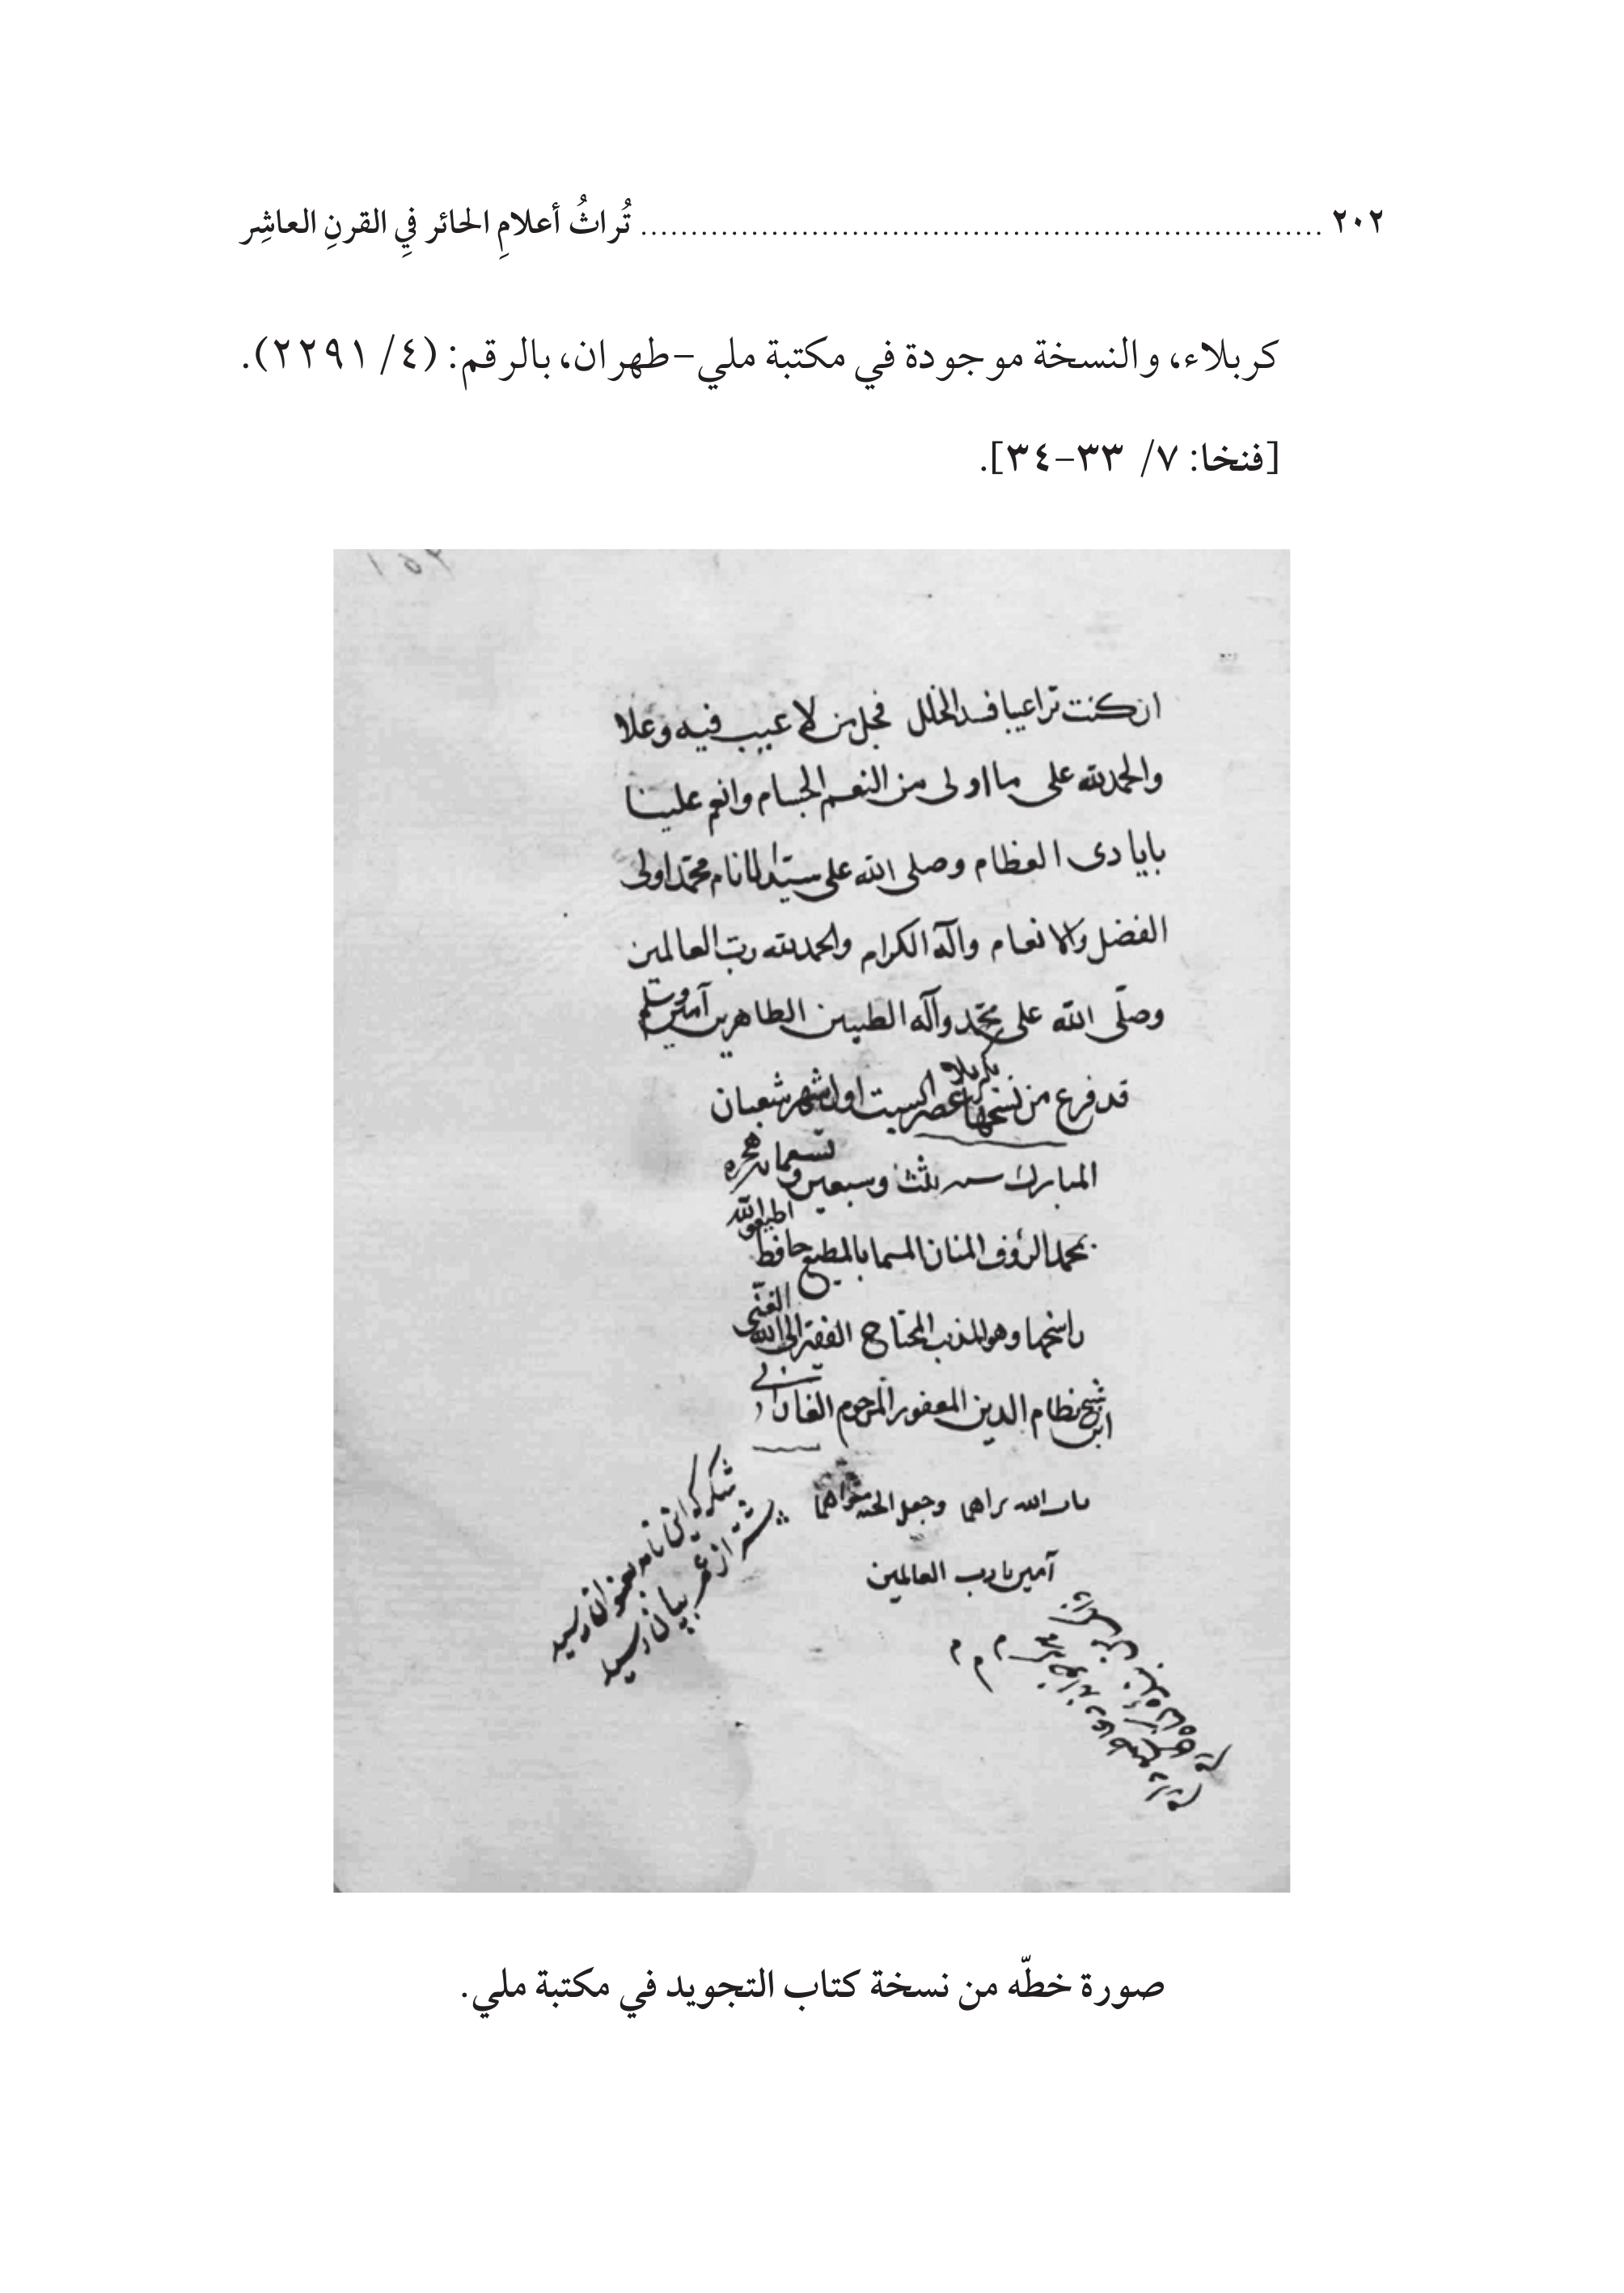 ٢٠٢ ........ تُراثُ أعلامِ الحائر فِي القرنِ العاشِر
كربلاء، والنسخة موجودة في مكتبة ملي-طهران، بالرقم: (٤/ ٢٢٩١).
[فنخا: ٧/ ٣٣-٣٤].
ان كنت ترا عيبا فسد الخلل فجل من لا عيب فيه وعلا
والحمد لله على ما اولى من النعم الجسام وانعم علينا
بايادى العظام وصلى الله على سيد الانام محمد اولى
الفضل والانعام وآله الكرام والحمد لله رب العالمين
وصلّى الله على محمّد وآله الطيبين الطاهرين آمين وسلم
قد فرغ من نسخها بكربلا عصر السبت اول شهر شعبان
المبارك سنه ثلث وسبعين وتسعمايه هجره
بحمد الرؤف المنان المسما بالمطيع حافظ
وهو المذنب المحتاج الفقير الى الله الغنى
ابن شيخ نظام الدين المغفور المرحوم
الله ثراهما وجعل الجنه مثواهما
آمين يا رب العالمين
شكر كه اين نامه بعنوان رسيد
پيشتر از عمر بپايان رسيد
م م م
صورة خطّه من نسخة كتاب التجويد في مكتبة ملي.